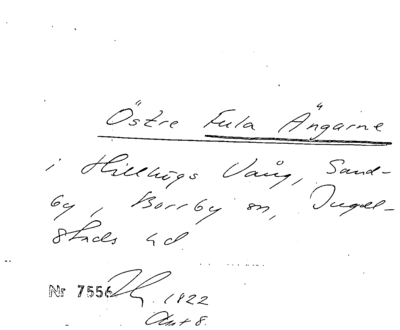 Östre Fula Ängarne
i Hillhögs Vång, Sand-
by, Borrby sn, Ingel-
stads hd.
Nr 7556 1922
Akt 8.